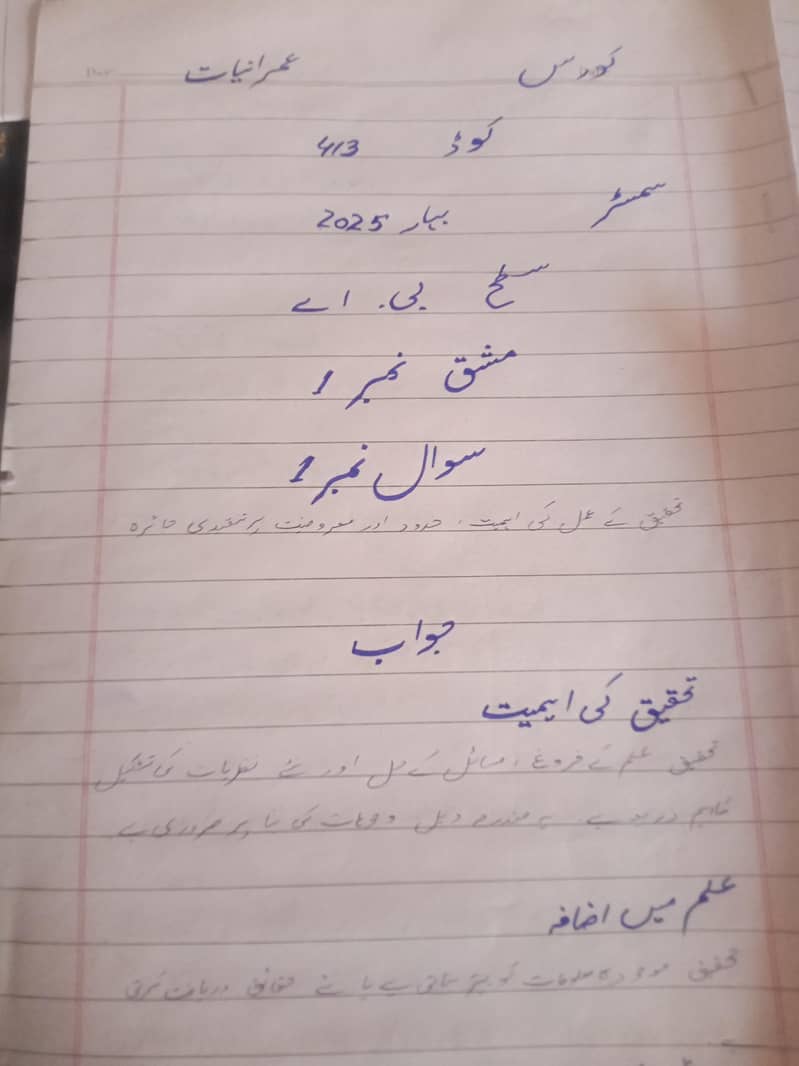 کورس عمرانیات
کوڈ 413
سمسٹر بہار 2025
سطح بی۔ اے
مشق نمبر 1
سوال نمبر 1
تحقیق کے عمل کی اہمیت، حدود اور معروضیت پر تنقیدی جائزہ
جواب
تحقیق کی اہمیت
تحقیق علم کے فروغ، مسائل کے حل اور نئے نظریات کی تشکیل
اہم ذریعہ ہے۔ یہ مندرجہ ذیل وجوہات کی بنا پر ضروری ہے
علم میں اضافہ
تحقیق موجودہ معلومات کو بہتر بناتی ہے یا نئے حقائق دریافت کرتی